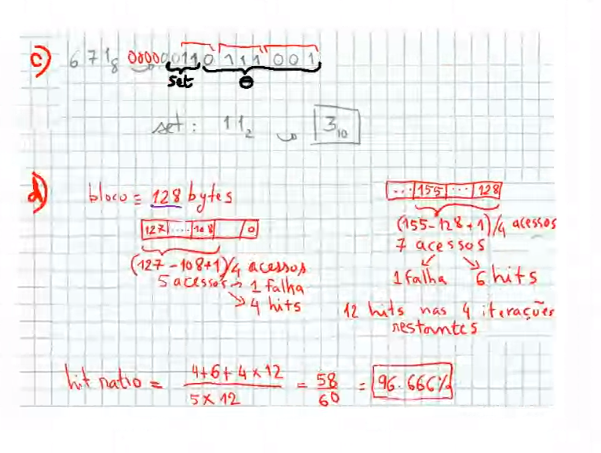 c) 671₈ 000000110111001
set θ
set: 11₂ → 3₁₀
d) bloco = 128 bytes
127 .... 108 0
(127-108+1)/4 acessos
5 acessos → 1 falha
→ 4 hits
... 155 ... 128
(155-128+1)/4 acessos
7 acessos
1 falha 6 hits
12 hits nas 4 iterações
restantes
hit ratio = (4+6+4×12)/(5×12) = 58/60 = 96.666%